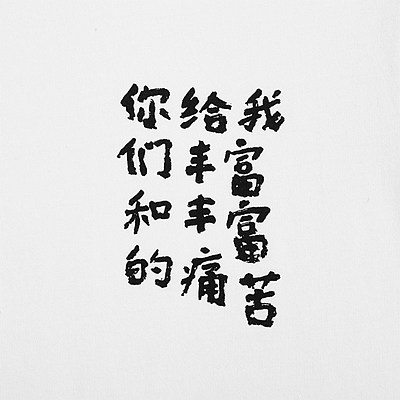 你给我
们丰富
和丰富
的痛苦